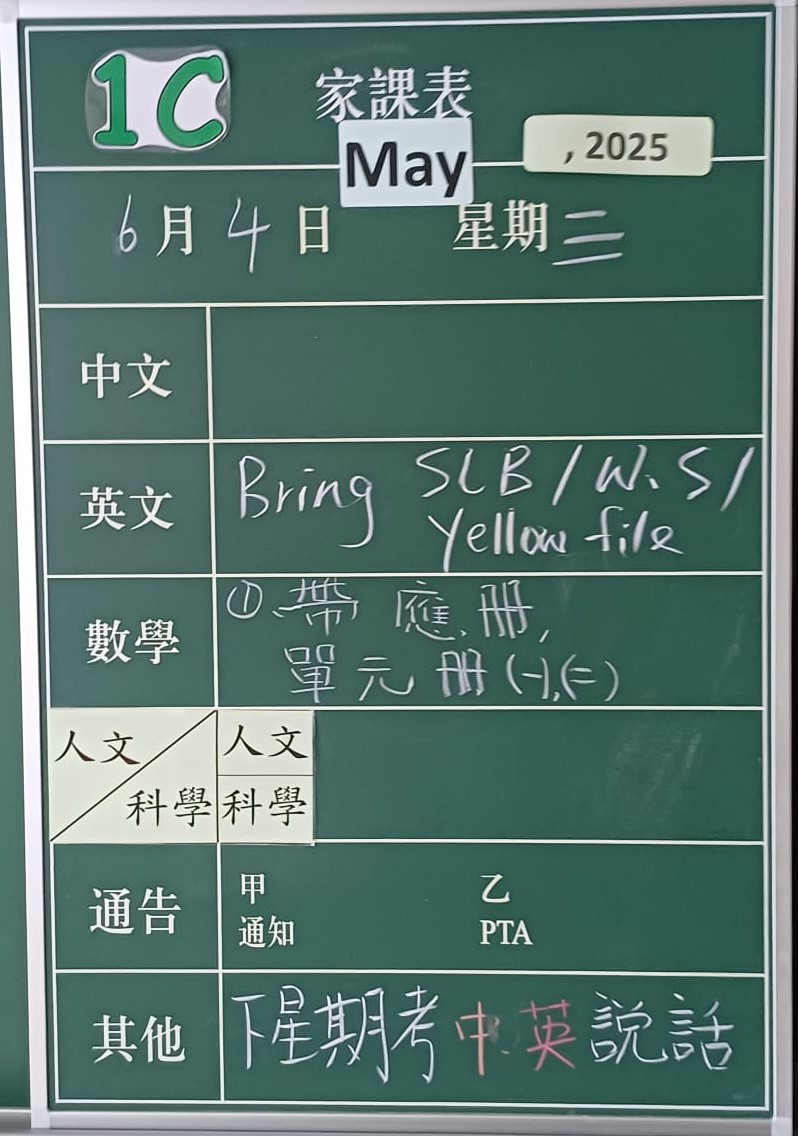 1C 家課表
May , 2025
6月4日 星期三
中文
英文 Bring SLB / W.S /
Yellow file
數學 ①、帶 應.冊,
單元冊(一),(二)
人文 人文
科學 科學
通告 甲 乙
通知 PTA
其他 下星期考中.英說話